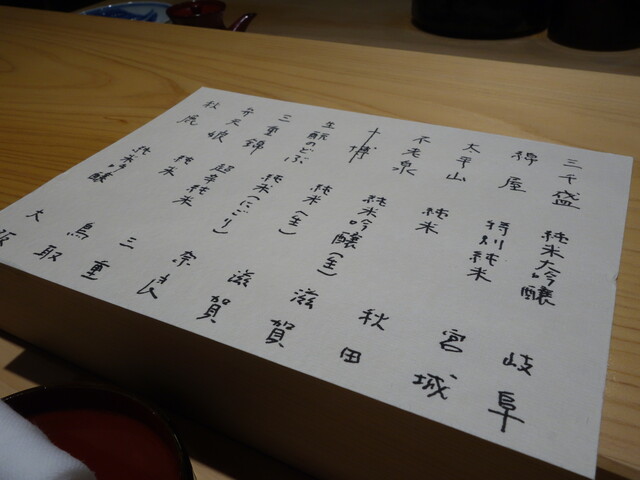 三千盛 純米大吟醸 岐阜
綿屋 特別純米 宮城
太平山 純米 秋田
不老泉 純米吟醸(生) 滋賀
一博 純米(生) 滋賀
生酛のどぶ 純米(にごり) 奈良
三重錦 超辛純米 三重
弁天娘 純米 鳥取
秋鹿 純米吟醸 大阪